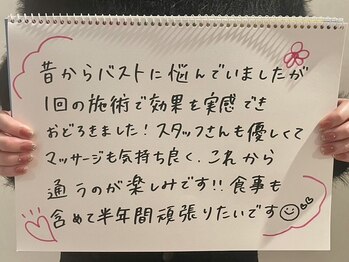 昔からバストに悩んでいましたが
1回の施術で効果を実感でき
おどろきました！スタッフさんも優しくて
マッサージも気持ち良く、これから
通うのが楽しみです!!食事も
含めて半年間頑張りたいです